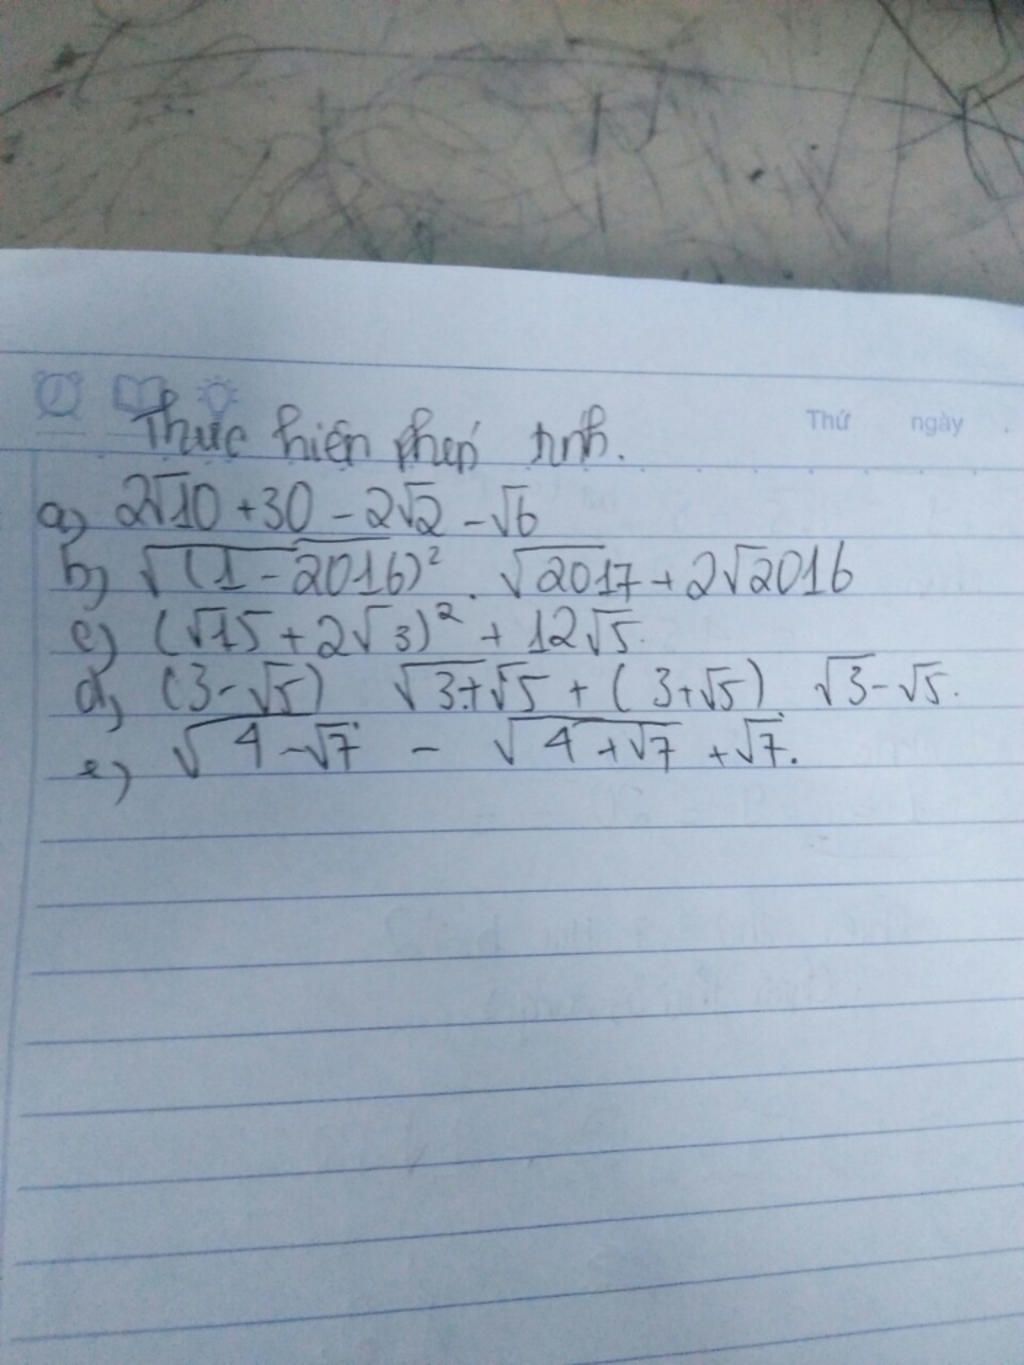 Thứ ngày .
Thực hiện phép tính.
a) 2√10 + 30 - 2√2 - √6
b) √(1 - 2016)² . √2017 + 2√2016
c) (√15 + 2√3)² + 12√5.
d) (3 - √5) √3 + √5 + (3 + √5) . √3 - √5.
e) √4 - √7 - √4 + √7 + √7.